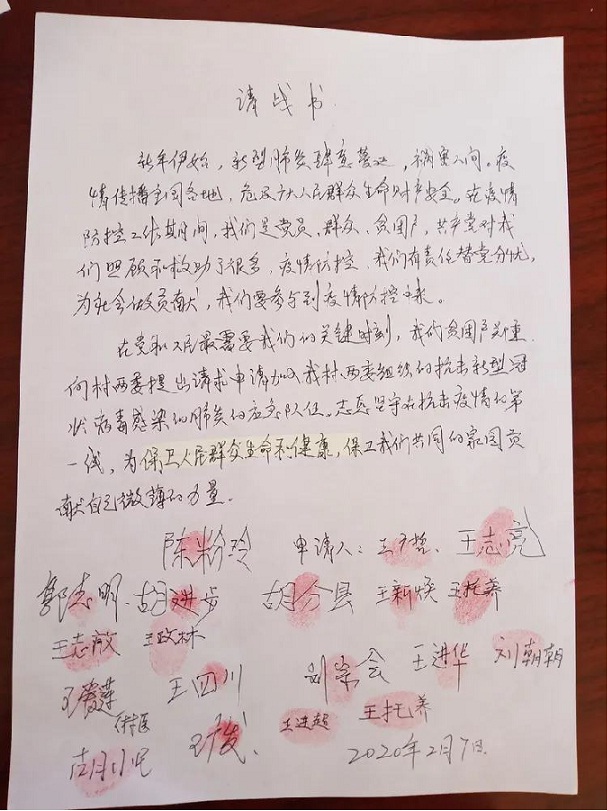 请战书
新年伊始，新型肺炎肆意蔓延，祸害人间。疫
情传播全国各地，危及广大人民群众生命财产安全。在疫情
防控工作期间，我们是党员、群众、贫困户，共产党对我
们照顾和救助了很多，疫情防控，我们有责任替党分忧，
为社会做贡献，我们要参与到疫情防控之来。
在党和人民最需要我们的关键时刻，我代贫困户郑重
向村两委提出请求申请加入我村两委组织的抗击新型冠
状病毒感染的肺炎的应急队伍。志愿坚守在抗击疫情的第
一线，为保卫人民群众生命和健康，保卫我们共同的家园贡
献自己微薄的力量。
陈粉玲 申请人：王 王志亮
郭志明 胡进步 胡分县 王新焕 王托养
王志敏 王政林
王 王四川 刘宗会 王进华 刘朝朝
王 王进超 王托养
2020年2月7日